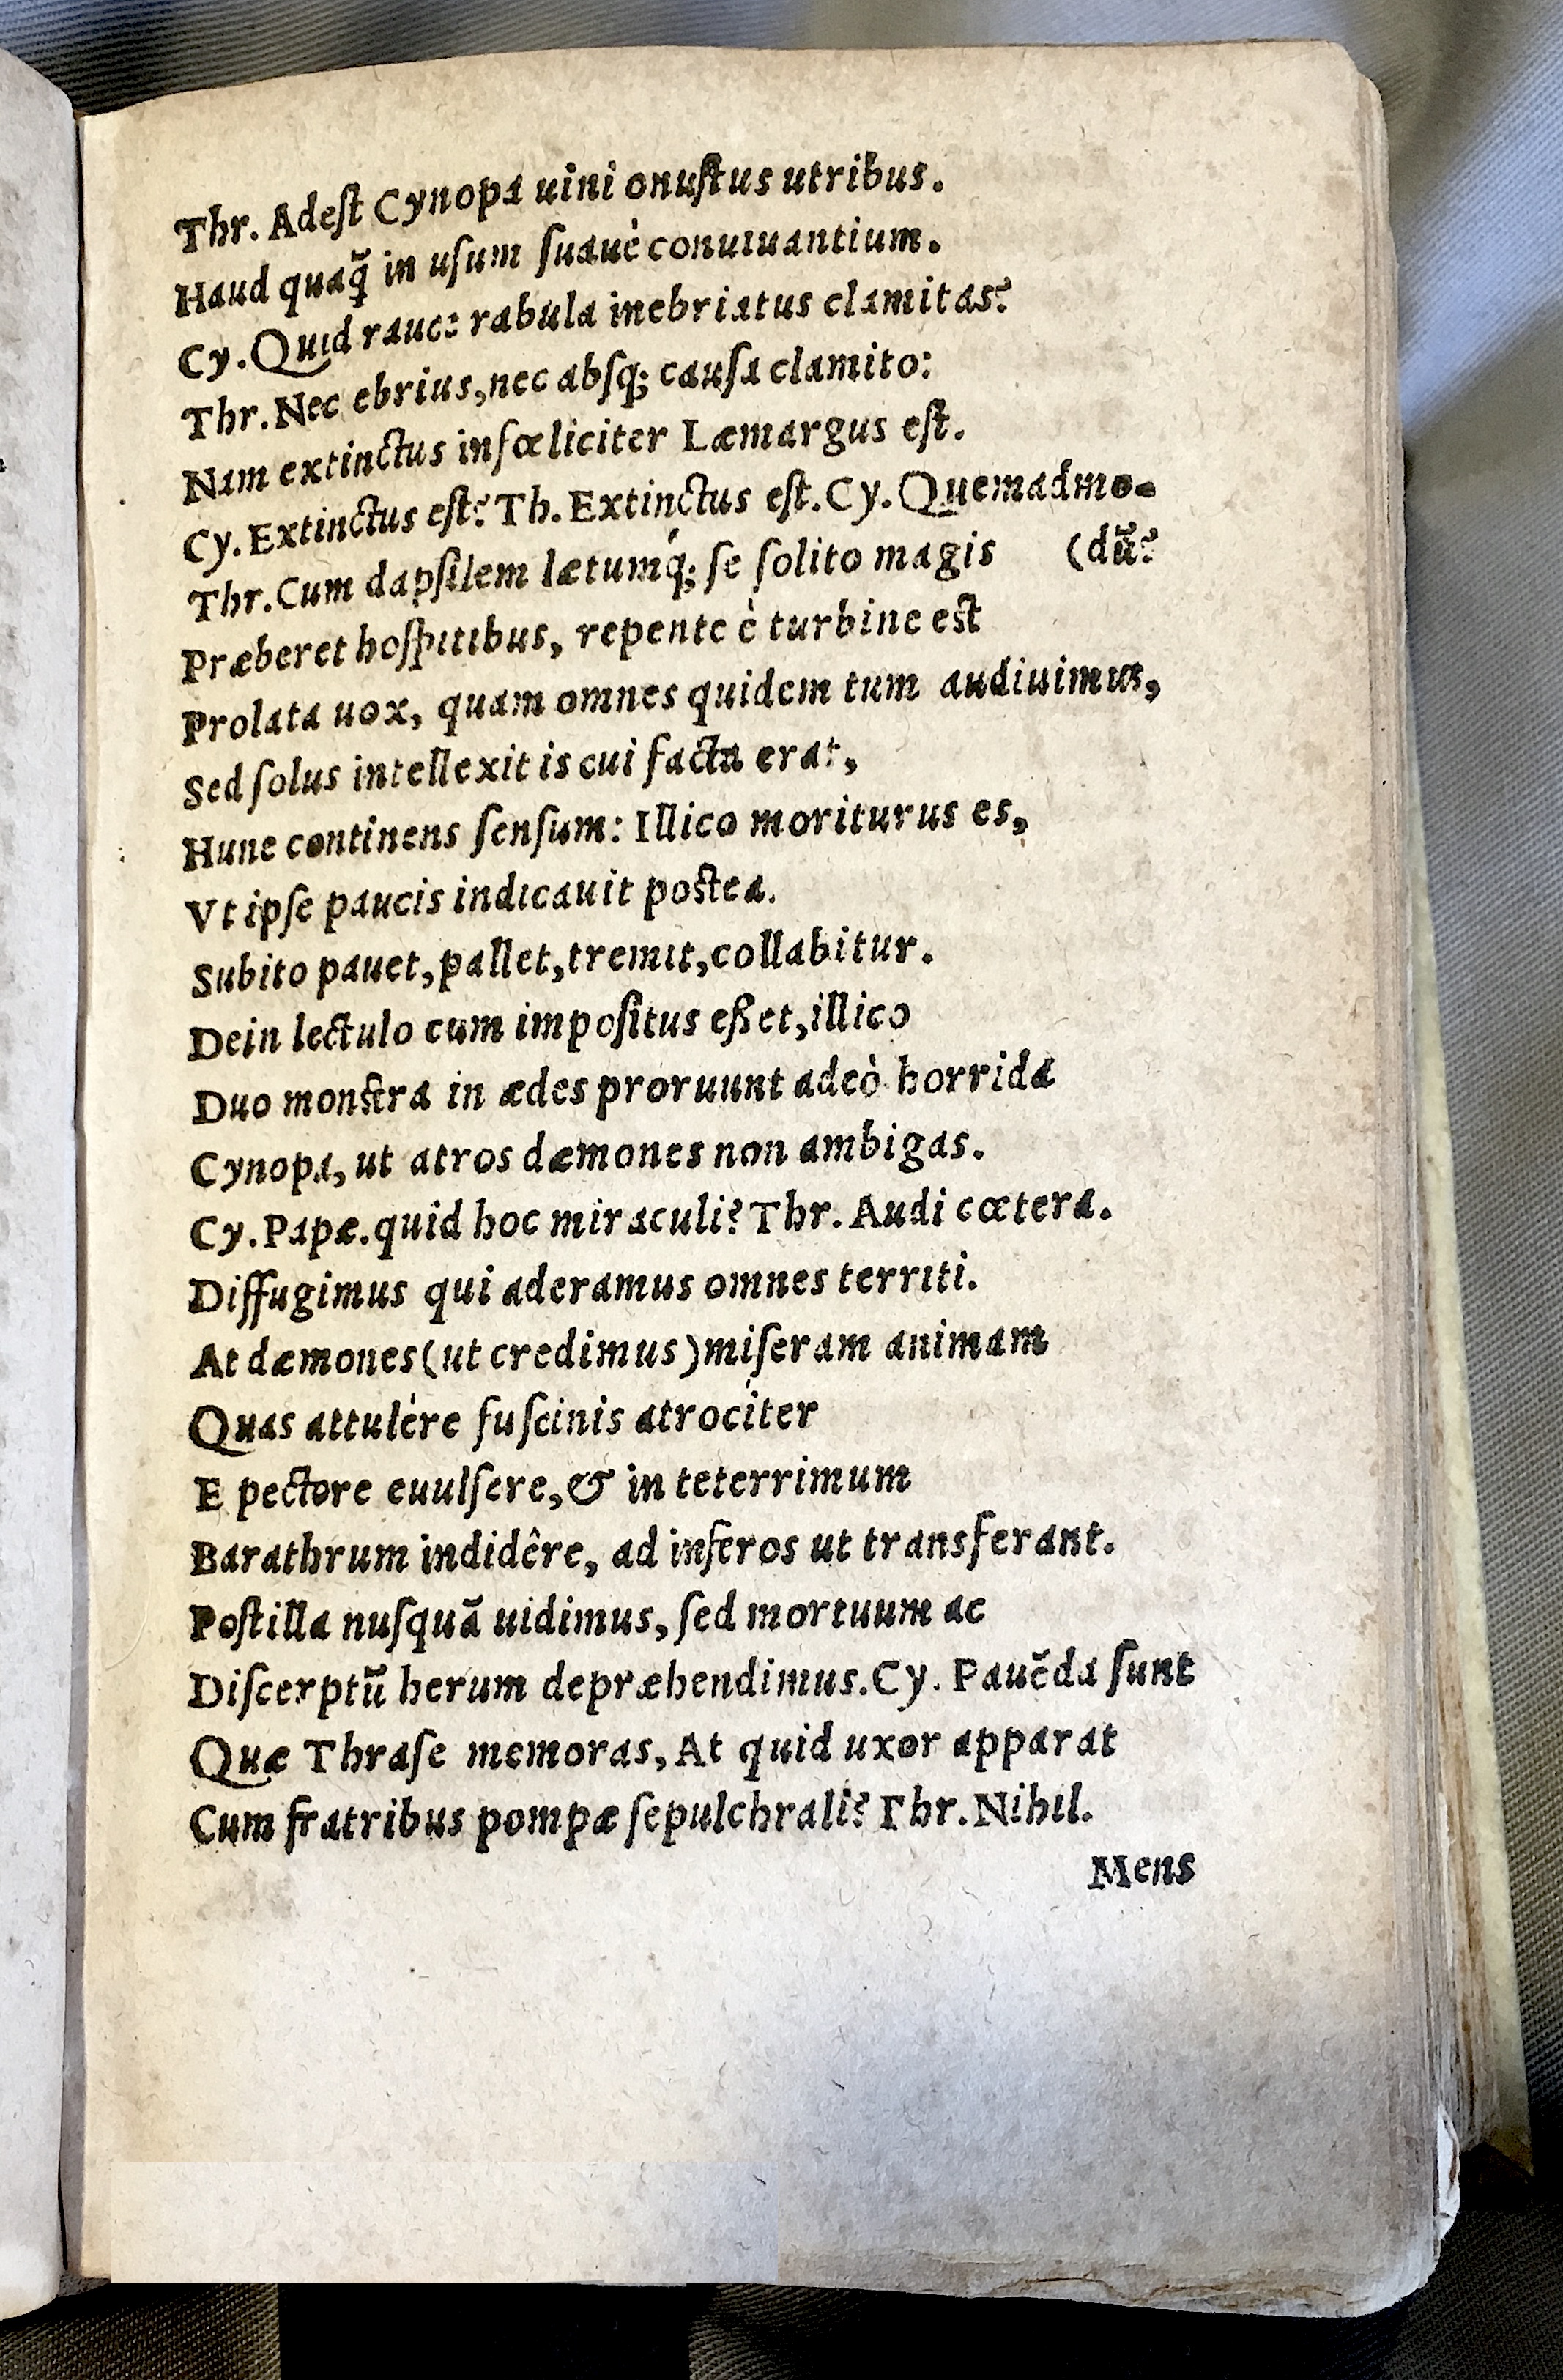 Thr. Adeſt Cynopa uini onuſtus utribus.
Haud quaq̃ in uſum ſuauè conuiuantium.
Cy. Quid rauce rabula inebriatus clamitas?
Thr. Nec ebrius, nec abſq; cauſa clamito:
Nam extinctus infœliciter Læmargus eſt.
Cy. Extinctus eſt? Th. Extinctus eſt. Cy. Quemadmo-
Thr. Cum dapſilem lætumq́; ſe ſolito magis (dũ?
Præberet hoſpitibus, repente è turbine eſt
Prolata uox, quam omnes quidem tum audiuimus,
Sed ſolus intellexit is cui facta erat,
Hunc continens ſenſum: Illico moriturus es,
Vt ipſe paucis indicauit poſtea.
Subito pauet, pallet, tremit, collabitur.
Dein lectulo cum impoſitus eßet, illico
Duo monſtra in ædes proruunt adeò horrida
Cynopa, ut atros dæmones non ambigas.
Cy. Papæ. quid hoc miraculi? Thr. Audi cœtera.
Diffugimus qui aderamus omnes territi.
At dæmones (ut credimus) miſeram animam
Quas attulêre fuſcinis atrociter
E pectore euulſere, & in teterrimum
Barathrum indidêre, ad inferos ut transferant.
Poſtilla nuſquã uidimus, ſed mortuum ac
Diſcerptũ herum depræhendimus. Cy. Pauẽda ſunt
Quæ Thraſe memoras, At quid uxor apparat
Cum fratribus pompæ ſepulchrali? Thr. Nihil.
Mens